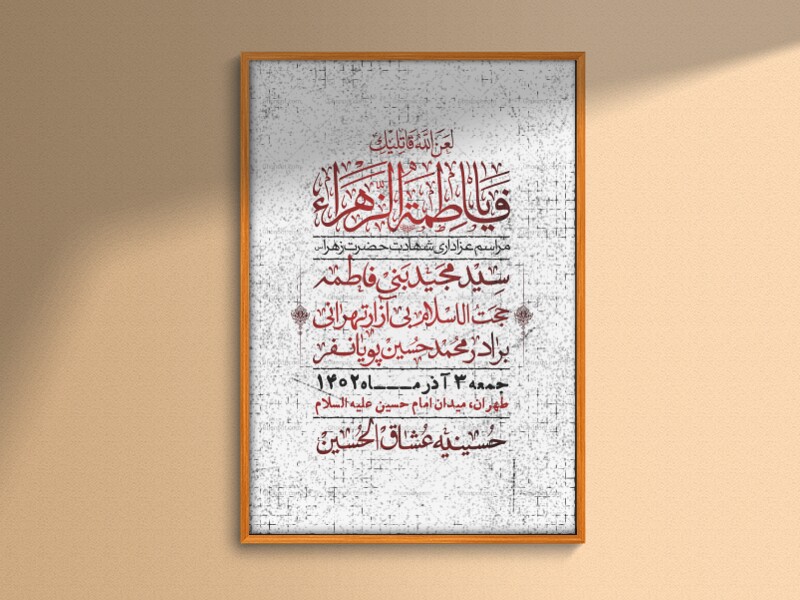 لَعَنَ اللّٰهُ قَاتِلِيكِ
فَيَا فاطِمَةُ الزَّهراءِ
مراسم عزاداری شهادت حضرت زهرا س
سیّد مجید بنی فاطمه
حجت الاسلام بی آزار تهرانی
برادر محمد حسین پویانفر
جمعه ۳ آذر مـــاه ۱۴۰۲
طهران، میدان امام حسین علیه السلام
حُسینیّه عُشاقُ الحُسَین